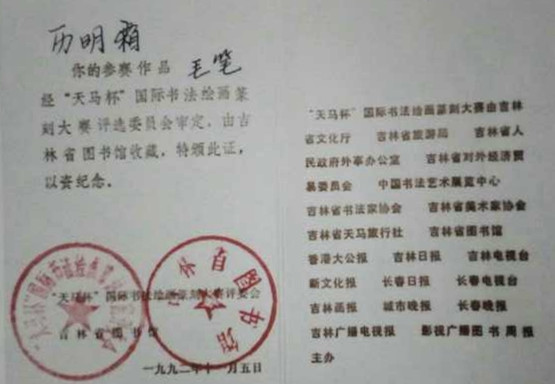 历明
你的参赛作品 毛笔
经“天马杯”国际书法绘画篆
刻大赛评选委员会审定，由吉
林省图书馆收藏，特颁此证，
以资纪念。
“天马杯”国际书法绘画篆刻大赛评委会
吉林省图书馆
一九九二年十一月五日
“天马杯”国际书法绘画篆刻大赛由吉林
省文化厅 吉林省旅游局 吉林省人
民政府外事办公室 吉林省对外经济贸
易委员会 中国书法艺术展览中心
吉林省书法家协会 吉林省美术家协会
吉林省天马旅行社 吉林省图书馆
香港大公报 吉林日报 吉林电视台
新文化报 长春日报 长春电视台
吉林画报 城市晚报 长春晚报
吉林广播电视报 影视广播图书周报
主办